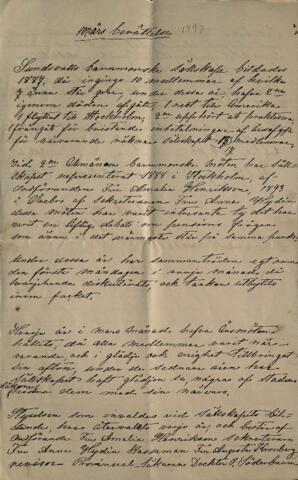 Års berättelse 1897
Sundsvalls barnmorske Sällskap bildades
1887, då ingingo 10 medlemmar af hvilka
7 ännu stå qvar, under dessa år hafva 2ne
igenom döden afgått, 1 rest till Amerika
1 flyttat till Stockholm, 2 upphört att praktisera,
1 frångått för bristande inbetalningar af årsafgift
för närvarande räknar sällskapet medlemmar,
Vid 2ne Allmänna barnmorske möten har Säll-
skapet representerat 1888 i Stockholm, af
Ordföranden Fru Amalia Henriksson, 1893
i Örebro af Sekreteraren Fru Anna Hydén
dessa möten har varit intressanta ty det har
varit en liflig debatt om pensions frågan
som ännu i det närmaste står på samma punkt
Under dessa år har sammanträden egt rum
den första måndagen i varje månad, då
diskuterats, och tankar utbytts
inom facket.
Hvarje år i Mars månad, hafva Årsmöten
hållits, då alla medlemmar varit när-
varande, och i glädje och enighet tillbringat
sin afton, under de sednare åren har
Sällskapet haft glädjen se några af Stadens
läkare dem med sin närvaro.
Styrelsen som invaldes vid Sällskapets bil-
dande, har återvalts varje år, och består af
Ordförande Fru Amalia Henriksson Sekreterare
Fru Anna Hydén Kassaman Fru Augusta Kronberg
revisor Provincial-Läkaren Docktor O. Söderbaum